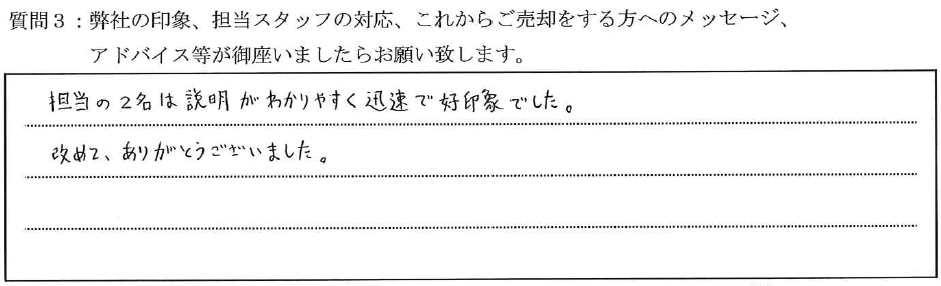 質問３：弊社の印象、担当スタッフの対応、これからご売却をする方へのメッセージ、
アドバイス等が御座いましたらお願い致します。
担当の2名は説明がわかりやすく迅速で好印象でした。
改めて、ありがとうございました。